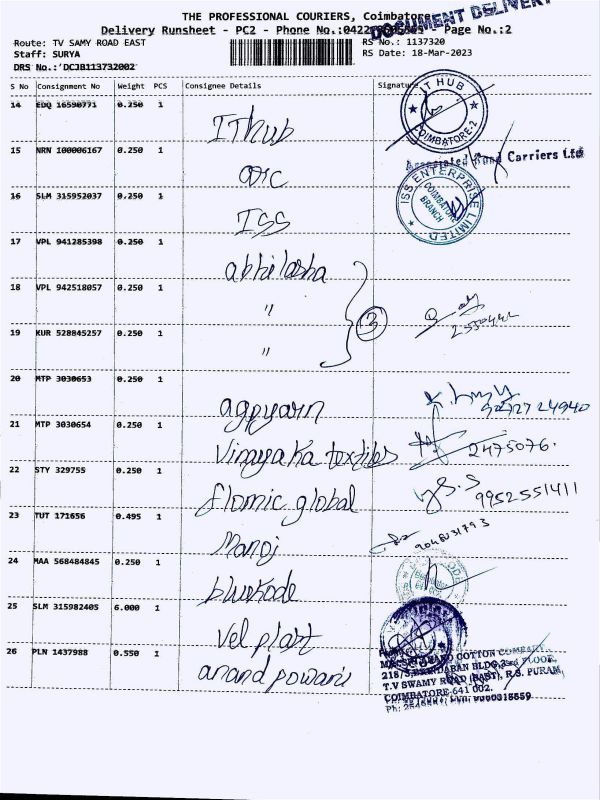 THE PROFESSIONAL COURIERS, Coimbatore
DOCUMENT DELIVERY
Delivery Runsheet - PC2 - Phone No.:0422 Page No.:2
Route: TV SAMY ROAD EAST
RS No.: 1137320
Staff: SURYA
RS Date: 18-Mar-2023
DRS No.:'DCJB113732002
S No Consignment No Weight PCS Consignee Details Signature
14 EDQ 16590771 0.250 1 IThub
IT HUB
COIMBATORE-2
15 NRN 100006167 0.250 1 arc
Associated Road Carriers Ltd
16 SLM 315952037 0.250 1 ISS
ISS ENTERPRISE LIMITED
COIMBATORE
BRANCH
17 VPL 941285398 0.250 1 abhilasha
18 VPL 942518057 0.250 1 "
3
19 KUR 528845257 0.250 1 "
20 MTP 3030653 0.250 1 agpyarn
21 MTP 3030654 0.250 1 Vinayaka textiles
2475076.
22 STY 329755 0.250 1 flomic global
9952551411
23 TUT 171656 0.495 1 Manoj
24 MAA 568484845 0.250 1 bluekode
25 SLM 315982405 6.000 1 Vel plast
26 PLN 1437988 0.550 1 anand powani
COTTON COMPANY.
218/3, BRINDABAN BLDG, FLOOR,
T.V SWAMY ROAD (EAST), R.S. PURAM,
COIMBATORE-641 002.